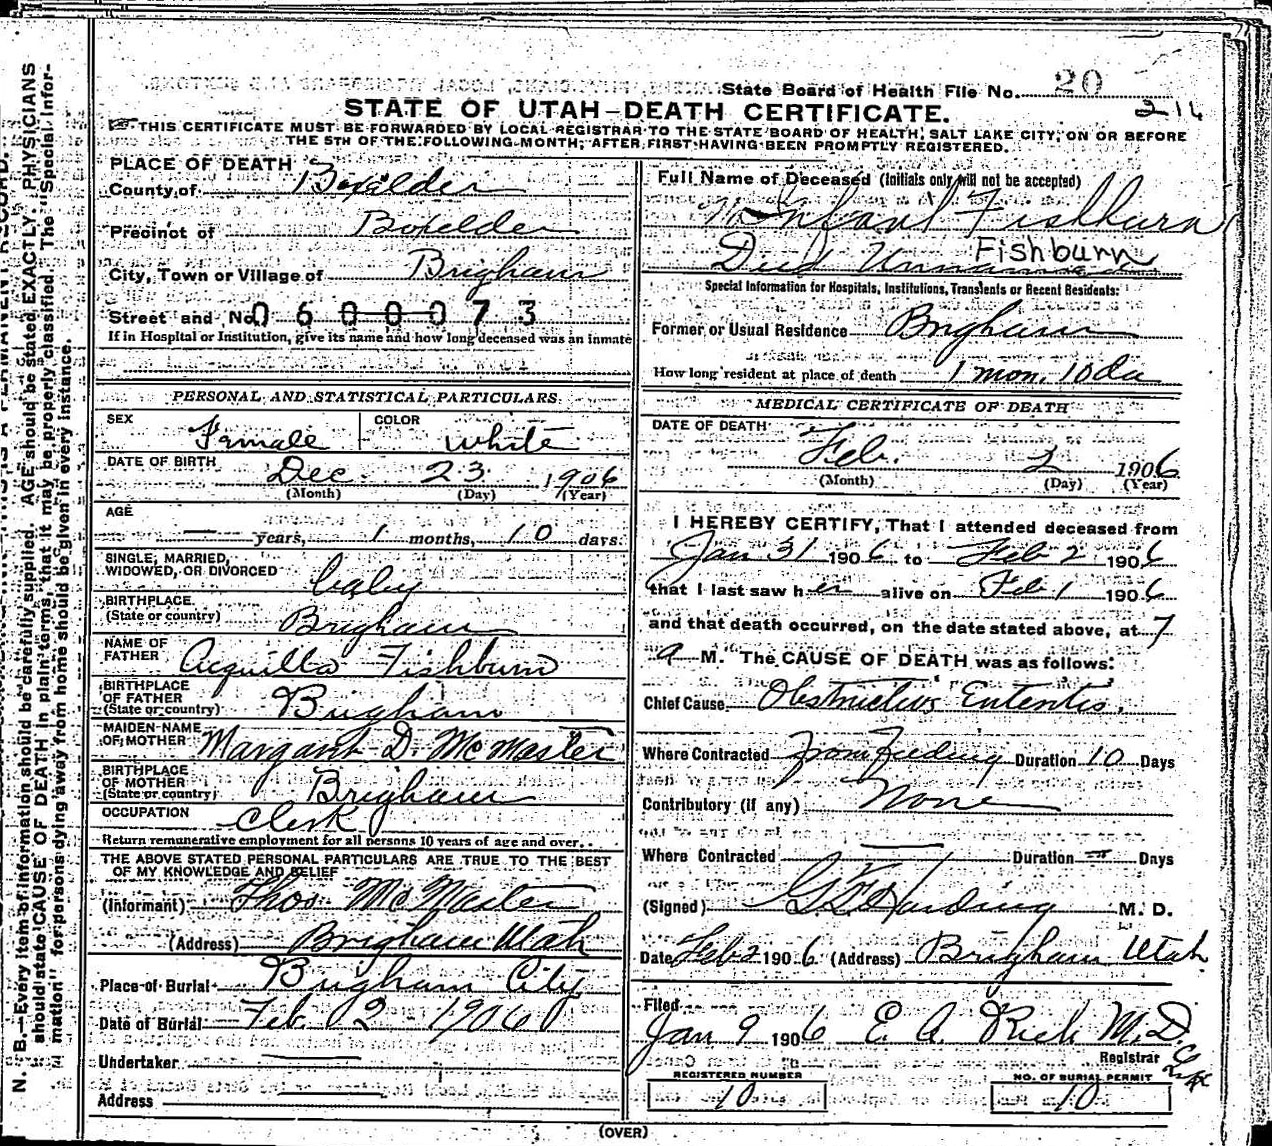 State Board of Health File No. 20
216
STATE OF UTAH—DEATH CERTIFICATE.
THIS CERTIFICATE MUST BE FORWARDED BY LOCAL REGISTRAR TO THE STATE BOARD OF HEALTH, SALT LAKE CITY, ON OR BEFORE
THE 5TH OF THE FOLLOWING MONTH, AFTER FIRST HAVING BEEN PROMPTLY REGISTERED.
PLACE OF DEATH
County of Boxelder
Precinct of Boxelder
City, Town or Village of Brigham
Street and No. 0600073
If in Hospital or Institution, give its name and how long deceased was an inmate
PERSONAL AND STATISTICAL PARTICULARS
SEX Female COLOR White
DATE OF BIRTH Dec. 23 1906
(Month) (Day) (Year)
AGE
— years, 1 months, 10 days.
SINGLE, MARRIED,
WIDOWED, OR DIVORCED baby
BIRTHPLACE
(State or country) Brigham
NAME OF
FATHER Acquilla Fishburn
BIRTHPLACE
OF FATHER
(State or country) Brigham
MAIDEN NAME
OF MOTHER Margaret D. McMaster
BIRTHPLACE
OF MOTHER
(State or country) Brigham
OCCUPATION Clerk
Return remunerative employment for all persons 10 years of age and over.
THE ABOVE STATED PERSONAL PARTICULARS ARE TRUE TO THE BEST
OF MY KNOWLEDGE AND BELIEF
(Informant) Thos McMaster
(Address) Brigham Utah
Place of Burial Brigham City
Date of Burial Feb. 2 - 1906
Undertaker
Address
Full Name of Deceased (Initials only will not be accepted)
Infant Fishburn
Fishburn
Died Unnamed
Special Information for Hospitals, Institutions, Transients or Recent Residents:
Former or Usual Residence Brigham
How long resident at place of death 1 mon. 10 da
MEDICAL CERTIFICATE OF DEATH
DATE OF DEATH
Feb. 2 1906
(Month) (Day) (Year)
I HEREBY CERTIFY, That I attended deceased from
Jan 31 1906 to Feb 2 1906
that I last saw her alive on Feb 1 1906
and that death occurred, on the date stated above, at 7
a M. The CAUSE OF DEATH was as follows:
Chief Cause Obstructive Enteritis.
Where Contracted From Feeding Duration 10 Days
Contributory (if any) None
Where Contracted — Duration — Days
(Signed) Harding M. D.
Date Feb 2 1906 (Address) Brigham Utah
Filed
Jan 9 1906 E. A. Rich M.D.
Registrar
REGISTERED NUMBER
10
NO. OF BURIAL PERMIT
10
(OVER)
N. B.—Every item of information should be carefully supplied. AGE should be stated EXACTLY. PHYSICIANS
should state CAUSE OF DEATH in plain terms, that it may be properly classified. The "Special Infor-
mation" for persons dying away from home should be given in every instance.